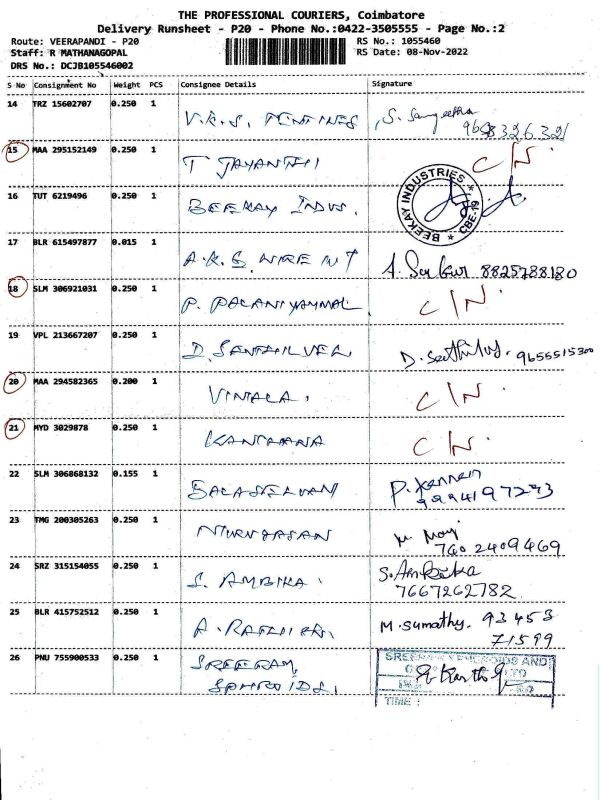 THE PROFESSIONAL COURIERS, Coimbatore
Delivery Runsheet - P20 - Phone No.:0422-3505555 - Page No.:2
Route: VEERAPANDI - P20 RS No.: 1055460
Staff: R MATHANAGOPAL RS Date: 08-Nov-2022
DRS No.: DCJB105546002
S No Consignment No Weight PCS Consignee Details Signature
14 TRZ 15602707 0.250 1 V.R.S. S. Sangeetha
15 MAA 295152149 0.250 1 T JAYANTHI C/N.
16 TUT 6219496 0.250 1 BEEKAY INDUS. BEEKAY INDUSTRIES * CBE-19 *
17 BLR 615497877 0.015 1 A.K.S. WIRE INT A. 8825788180
18 SLM 306921031 0.250 1 P. PALANIYAMMAL C/N.
19 VPL 213667207 0.250 1 D. SENTHILVEL D. Senthilvel. 9655515300
20 MAA 294582365 0.200 1 VIMALA. C/N.
21 MYD 3029878 0.250 1 KANCHANA C/N.
22 SLM 306868132 0.155 1 BALASELVAN P. Kannan
9994197273
23 TMG 200305263 0.250 1
740 2409469
24 SRZ 315154055 0.250 1 S. AMBIKA. S. Ambika
7667262782
25 BLR 415752512 0.250 1 A. M. Sumathy. 93453
71599
26 PNU 755900533 0.250 1 SREERAM SREERAM AND
SPHROIDS. LTD
TIME :